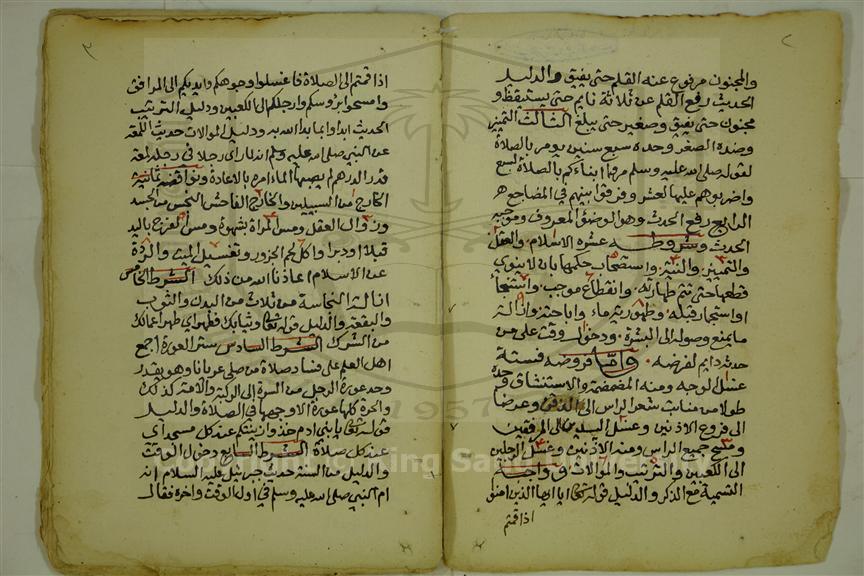 والمجنون مرفوع عنه القلم حتى يفيق والدليل
الحديث رفع القلم عن ثلاثة نايم حتى يستيقظ و
مجنون حتى يفيق وصغير حتى يبلغ الثالث التميز
وضده الصغر وحده سبع سنين يومر بالصلاة
لقوله صلى الله عليه وسلم مروا ابناءكم بالصلاة لسبع
واضربوهم عليها لعشر وفرقوا بينهم في المضاجع ه
الرابع رفع الحدث وهو الوضوء المعروف وموجبه
الحدث وشروطه عشره الاسلام والعقل
والتمييز والنية واستصحاب حكمها بان لا ينوي
قطعها حتى تتم طهارته وانقطاع موجب واستنجا
او استجمار قبله وطهورية ماء واباحته وازالة
ما يمنع وصوله الى البشرة ودخول وقت على من
حدثه دايم لفرضه واما فروضه فستة
غسل الوجه ومنه المضمضة والاستنشاق وحده
طولا من منابت شعر الراس الى الذقن وعرضا
الى فروع الاذنين وغسل اليدين الى المرفقين
ومسح جميع الراس ومنه الاذنين وغسل الرجلين
الى الكعبين والترتيب والموالات وواجبة
التسمية مع الذكر والدليل قوله تعالى يا ايها الذين امنوا
اذا قمتم
اذا قمتم الى الصلاة فاغسلوا وجوهكم وايديكم الى المرافق
وامسحوا برؤسكم وارجلكم الى الكعبين ودليل الترتيب
الحديث ابداوا بما بدا الله به ودليل الموالات حديث اللمعة
عن النبي صلى الله عليه وسلم انه لما راى رجلا في رجله لمعة
قدر الدرهم لم يصبها الماء امره بالاعادة ونواقضه ثمانية
الخارج من السبيلين والخارج الفاحش النجس من الجسد
وزوال العقل ومس المراة بشهوة ومس الفرج باليد
قبلا او دبرا واكل لحم الجزور وتغسيل الميت والردة
عن الاسلام اعاذنا الله من ذلك الشرط الخامس
ازالة النجاسة من ثلاث من البدن والثوب
والبقعة والدليل قوله تعالى وثيابك فطهر اي طهر اعمالك
من الشرك الشرط السادس ستر العورة اجمع
اهل العلم على فساد صلاة من صلى عريانا وهو يقدر
وحد عورة الرجل من السرة الى الركبة والامة كذلك
والحرة كلها عورة الا وجهها في الصلاة والدليل
قوله تعالى يا بني ادم خذوا زينتكم عند كل مسجد اي
عند كل صلاة الشرط السابع دخول الوقت
والدليل من السنة حديث جبريل عليه السلام انه
ام النبي صلى الله عليه وسلم في اول الوقت واخره فقال
1957